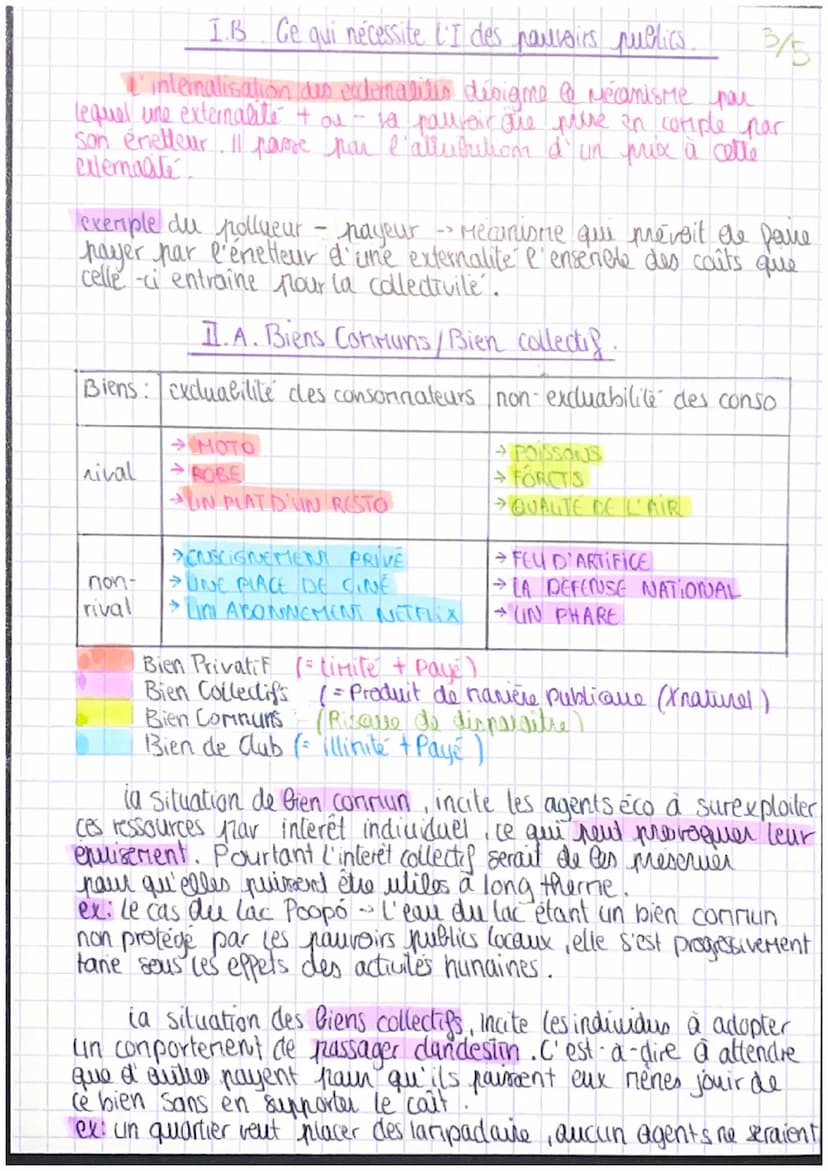 I.B. Ce qui nécessite l'I des pouvoirs publics.
3/5
L'internalisation des externalités désigne le mécanisme par
lequel une externalité + ou - va pouvoir être prise en compte par
son émetteur. Il passe par l'attribution d'un prix à cette
externalité.
exemple du pollueur - payeur -> Mécanisme qui prévoit de faire
payer par l'émetteur d'une externalité l'ensemble des coûts que
celle-ci entraine pour la collectivité.
II.A. Biens Communs/Bien collectif.
Biens : excluabilité des consommateurs non-excluabilité des conso
rival
→ MOTO
→ ROBE
→ UN PLAT D'UN RESTO
→ POISSONS
→ FÔRETS
→ QUALITÉ DE L'AIR
non-
rival
→ ENSEIGNEMENT PRIVÉ
→ UNE PLACE DE CINÉ
→ UN ABONNEMENT NETFLIX
→ FEU D'ARTIFICE
→ LA DEFENSE NATIONAL
→ UN PHARE
Bien Privatif (= limité + Payé)
Bien Collectifs (= Produit de manière publique (X naturel)
Bien Communs (Risque de disparaitre)
Bien de Club (= illimité + Payé)
la situation de bien commun, incite les agents éco à surexploiter
ces ressources par interêt individuel, ce qui peut provoquer leur
épuisement. Pourtant l'interêt collectif serait de les préserver
pour qu'elles puissent être utiles à long therme.
ex: le cas du lac Poopó -> L'eau du lac étant un bien commun
non protégé par les pouvoirs publics locaux, elle s'est progressivement
tarie sous les effets des activités humaines.
la situation des biens collectifs, incite les individus à adopter
un comportement de passager clandestin. C'est-à-dire à attendre
que d'autres payent pour qu'ils puissent eux mêmes jouir de
ce bien sans en supporter le coût.
ex: un quartier veut placer des lampadaire, aucun agents ne seraient